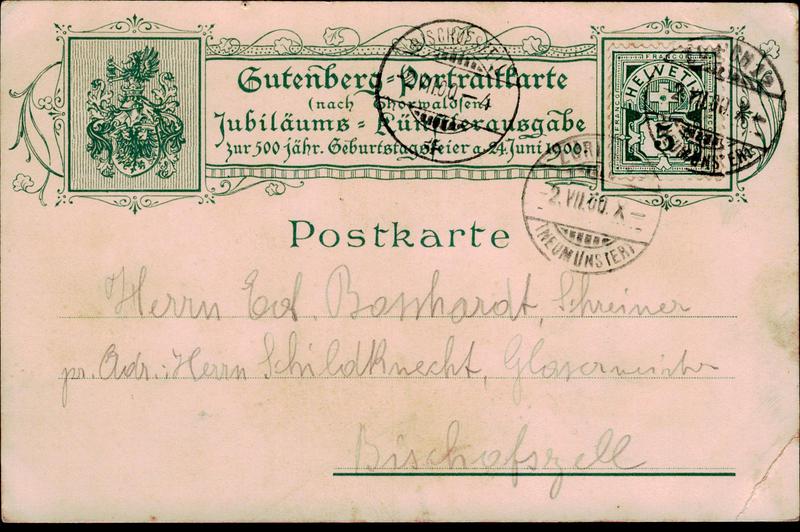 Gutenberg-Portraitkarte
(nach Thorwaldsen)
Jubiläums-Künstlerausgabe
zur 500 jähr. Geburtstagsfeier a. 24. Juni 1900.
HELVETIA
5
BISCHOFSZELL
2.VII.00.-4
ZÜRICH
2.VII.00.X-
(NEUMÜNSTER)
Postkarte
Herrn Ed. Bosshardt, Schreiner
pr. Adr.: Herrn Schildknecht, Glasermeister
Bischofszell